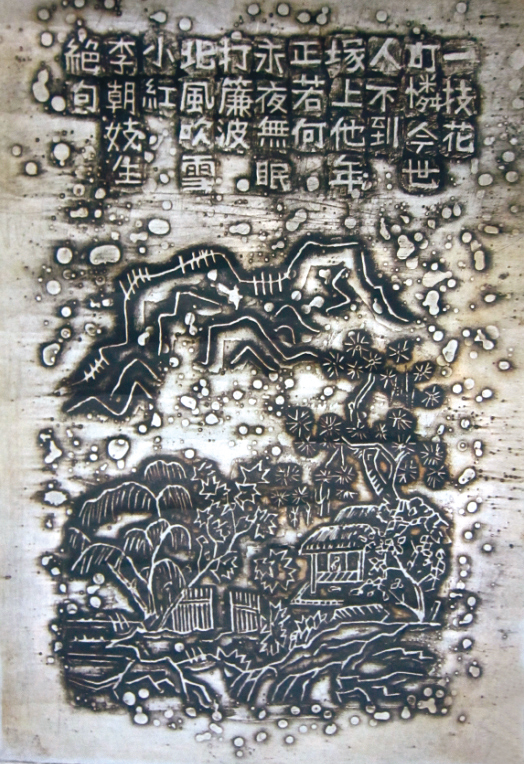 絶句
李朝妓生
小紅
北風吹雪
打簾波
永夜無眠
正若何
塚上他年
人不到
可憐今世
一枝花